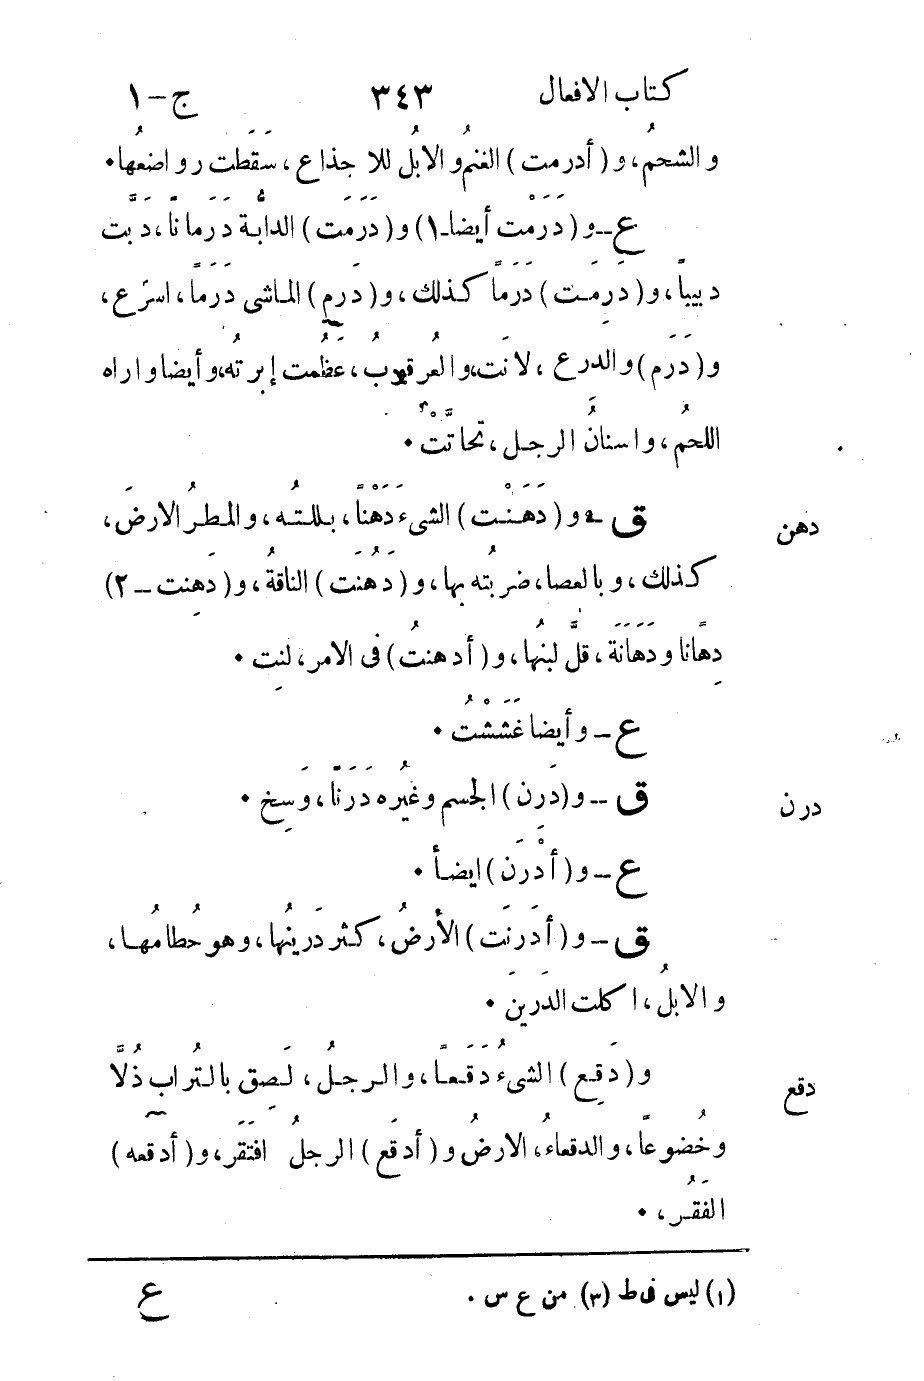 كتاب الافعال ٣٤٣ ج-١
والشحمُ، و(أدرمت) الغنمُ والابلُ للاجذاع، سَقَطت رواضعُها.
ع-و(دَرَمْت أيضا-١) و(دَرَمَت) الدابّةُ دَرَمانًا، دَبَّت
دبيبًا، و(درِمَت) دَرَمًا كذلك، و(دَرِم) الماشى دَرَمًا، اسرَع،
و(دَرَم) والدرع، لانَت، والعُرقوبُ، عَظُمت إبرتُه، وأيضا واراه
اللحمُ، واسنانُ الرجل، تحاتَّتْ.
دهن
ق-و(دَهَنْت) الشىءَ دَهْنًا، بللتُه، والمطرُ الارضَ،
كذلك، وبالعصا، ضربتُه بها، و(دَهُنَت) الناقةُ، و(دَهِنت-٢)
دِهَانا ودَهَانَةً، قلَّ لبنُها، و(أدهنتُ) فى الامر، لنِت.
ع-وأيضا غَشَشْتُ.
درن
ق-و(دَرِن) الجسم وغيُره دَرَنًا، وَسِخ.
ع-و(أدْرَن) ايضأ.
ق-و(أدَرنَت) الأرضُ، كثر دَرينُها، وهو حُطامُها،
والابلُ، اكلت الدَرينَ.
دقع
و(دَقِع) الشىءُ دَقَعًا، والرجلُ، لَصِق بالتُراب ذُلًّا
وخُضوعًا، والدقعاءُ، الارضُ و(أدقَع) الرجلُ افتَقَر، و(أدقعه)
الفَقُر،.
(١) ليس فى ط (٣) من ع س.
ع